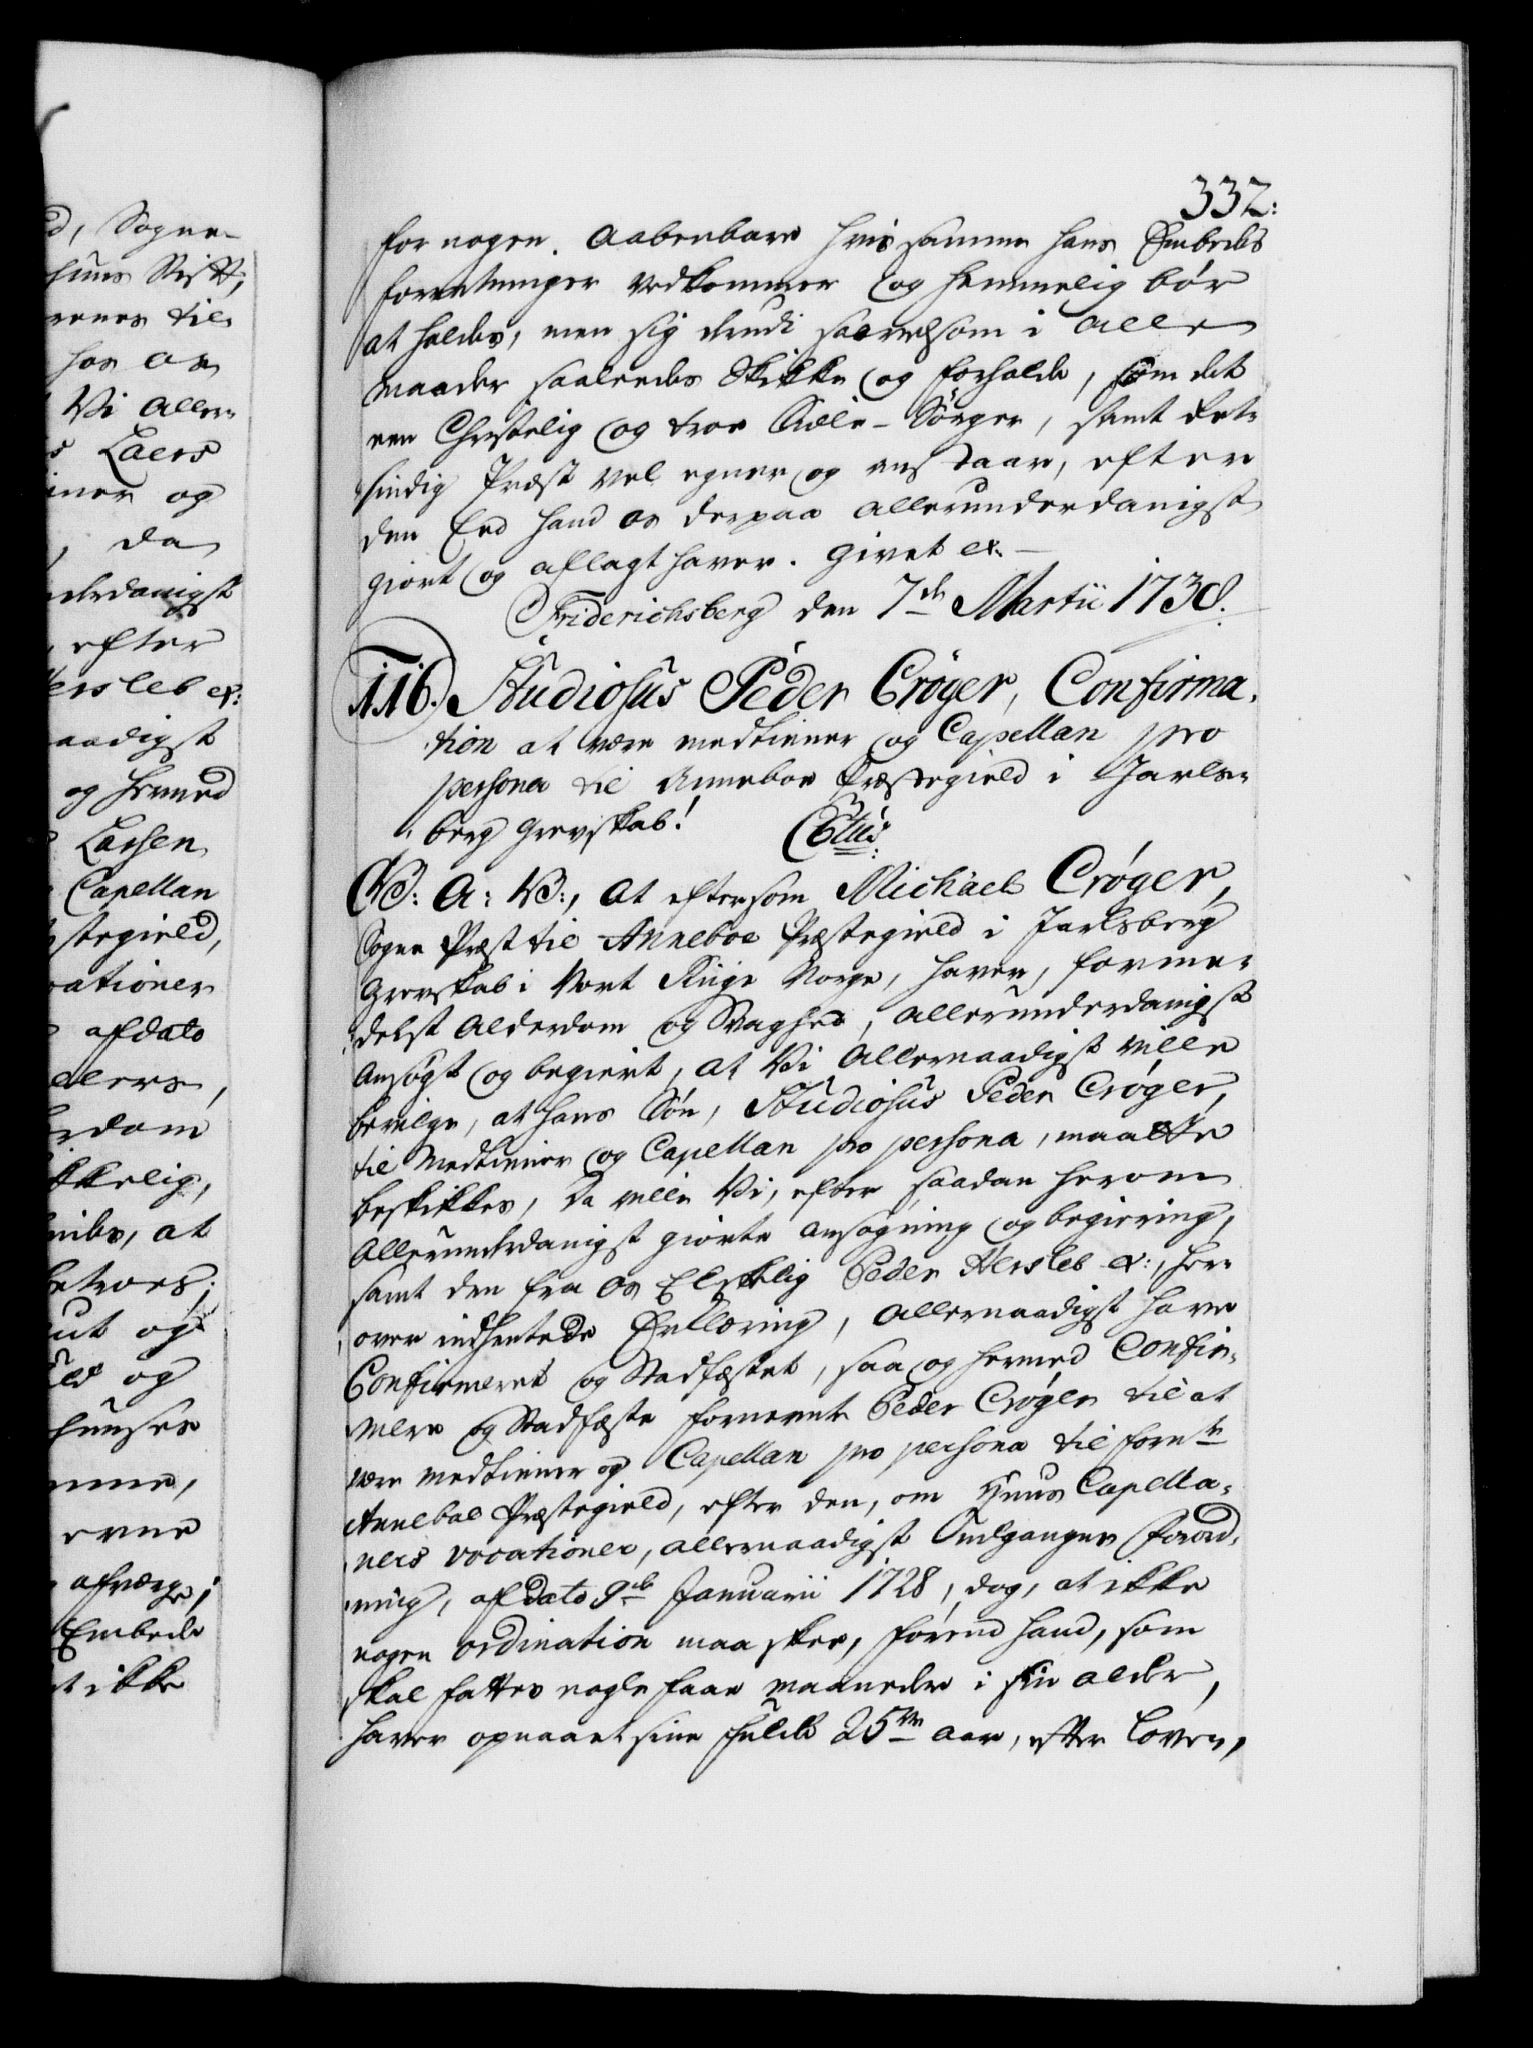 d, Sogne-
huus Stift,
renes til
hos os
Vi Aller-
s Laers
iner og
, da
nderdanigst
, efter
Hersleb &:
naadigst
og hermed
Larsen
Capellan
stegield,
vocationer
afdato
allers,
erdom
kkelig,
nibs, at
betroes;
ut og
eld og
huuses
mme,
erne
afværge;
Embede
at ikke
332:
for nogen. Aabenbare hvis samme hans Embeds
forretninger vedkommer og hemmelig bør
at holdes, men sig derudi saavelsom i alle
maader saaledes skikke og forholde, som det
een Christelig og troe Siæle-Sørger, samt Freds
sindig Præst vel egner og anstaar, efter
den Eed hand os derpaa allerunderdanigst
giort og aflagt haver. Givet &.
Friderichsberg den 7de Martii 1738.
116. Studiosus Peder Crøger, Confirma-
tion at være medtiener og Capellan pro
persona til Anneboe Præstegield i Jarls-
berg Grevskab!
C6tus:
V: G: V:, at eftersom Michael Crøger,
Sogne Præst til Anneboe Præstegield i Jarlsberg
Grevskab i Vort Riige Norge, haver, forme-
delst Alderdom og Svaghed, allerunderdanigst
ansøgt og begiert, at Vi Allernaadigst ville
bevilge, at hans Søn, Studiosus Peder Crøger,
til Medtiener og Capellan pro persona, maatte
beskikkes, Da ville Vi, efter saadan herom
Allerunderdanigst giorte ansøgning og begiering,
samt den fra os Elskelig Peder Hersleb &:, her-
over indhentede Erklæring, Allernaadigst have
Confirmeret og Stadfæstet, saa og hermed Confir-
mere og Stadfæste fornevnte Peder Crøger til at
være medtiener og Capellan pro persona til fornte
Anneboe Præstegield, efter den, om Huus Capella-
ners vocationer, allernaadigst Udgangne Forord-
ning, af dato 9de Januarii 1728, dog, at ikke
nogen ordination maa skee, førend hand, som
skal fattes nogle faae maaneder i sin alder,
haver opnaaet sine fulde 25ve aar, efter Loven,